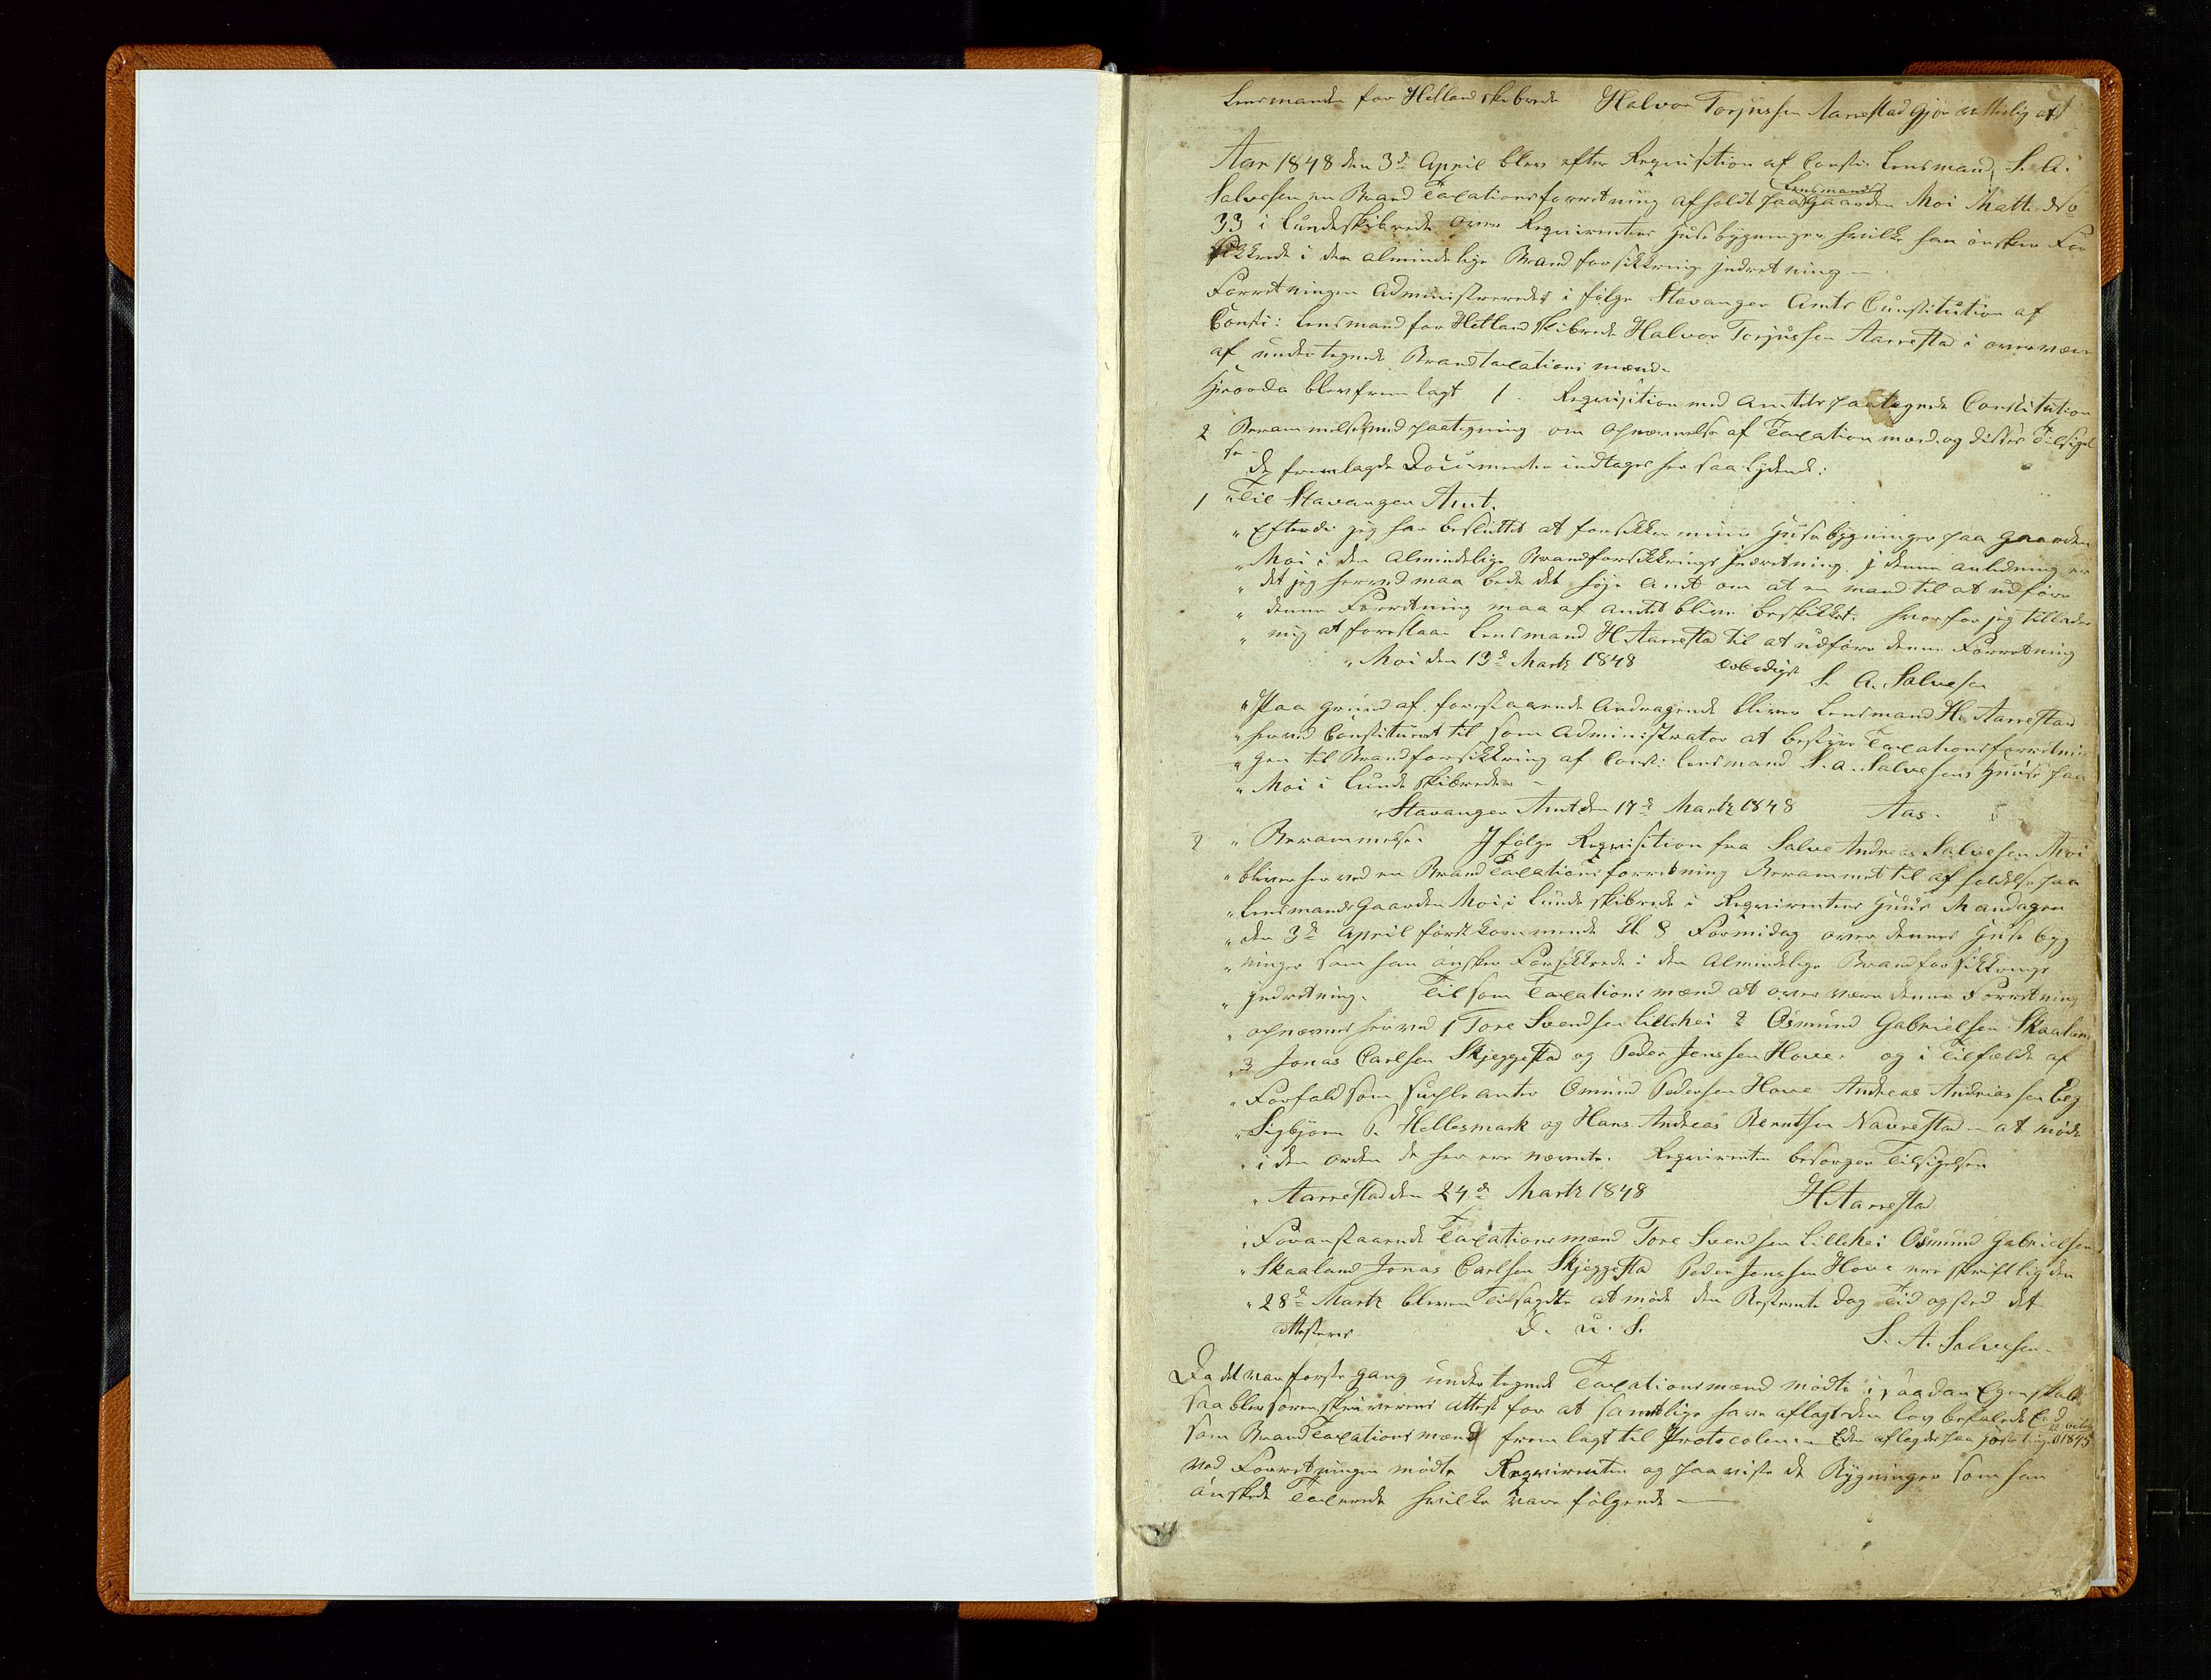 Lensmanden for Hetland skibrede Halvor Torjussen Aarrestad Gjør vitterlig at
Aar 1848 den 3d April blev efter Reqvisition af Consti: Lensmand S. A.
Salvesen en Brand Taxationsforretning afholdt paa Lensmands Gaarden Moi Matt. No
33 i Lundeskibrede over Reqvirentens Huusebygninger hvilke han ønsker For
sikkrede i den almindelige Brandforsikkrings Indretning –
Forretningen Administreredes i følge Stavanger Amts Constitution af
Consti: Lensmand for Hetland Skibrede Halvor Torjussen Aarrestad i overvær
af undertegnede Brandtaxations mænd.
Hvorda blev fremlagt 1. Reqvisition med Amtets paategnede Constitution
2 Berammelse med paategning om opnævnelse af Taxationmænd og disses Tilsigel
se –
De fremlagde Documenter indtages her saa lydende:
1 "Til Stavanger Amt.
" Efterdi jeg har besluttet at forsikkre mine Huusebygninger paa Gaarden
" Moi i den Almindelige Brandforsikkrings Indretning. I denne anledning er
" det jeg herved maa bede det høje Amt om at en mand til at udføre
" denne Forretning maa af Amtet blive beskikket. hvorfor jeg tillader
" mig at foreslaae Lensmand H. Aarrestad til at udføre denne Forretning
" Moi den 13d Martz 1848 ærbødigst S. A. Salvesen
" Paa Grund af forestaaende Andragende bliver Lensmand H. Aarrestad
" herved Constitueret til som Administrator at bestyre Taxationsforretnin
" gen til Brandforsikkring af Consti: Lensmand S. A. Salvesens Huuse paa
" Moi i Lunde skibrede –
" Stavanger Amt den 17d Martz 1848 Aas.
2 " Berammelse. I følge Reqvisition fra Salve Andreas Salvesen Moi
" bliver herved en Brand Taxations forretning Berammet til afholdelse paa
" Lensmands Gaarden Moi i Lunde skibrede i Reqvirentens Huus Mandagen
" den 3d April førstkommende Kl 8 Formidag over dennes Huse byg
" ninger som han ønsker Forsikkrede i den Almindelige Brandforsikkrings
" Indretning. Til som Taxations mænd at overvære denne Forretning
" opnævnes herved 1 Tore Svendsen Lillehei 2 Osmund Gabrielsen Skaaland
" 3 Jonas Carlsen Skjeggestad og Peder Jenssen Hove. og i Tilfælde af
" Forfald som Supleanter Omund Pedersen Hove Andreas Andreassen Eeg
" Sigbjørn P. Hellesmark og Hans Andreas Berntsen Navrestad – at møde
" i den orden de her ere nævnte. Reqvirenten besørger Tilsigelsen
" Aarrestad den 24d Martz 1848 H. Aarrestad
" Foranstaaende Taxationsmænd Tore Svendsen Lillehei Osmund Gabrielsen
" Skaaland Jonas Carlsen Skjeggestad Peder Jenssen Hove ere skriftlig den
" 28d Martz bleven Tilsagdte at møde den Bestemte dag Tid og sted det
attesteres D. u. S. S. A. Salvesen –
Da det var første Gang undertegnede Taxationsmænd mødte i saadan Egenskab
saa blev sorenskriverens Attest for at samtlige have aflagt den lov befalede Eed
som Brand Taxationsmænd fremlagt til Protocolen – Eden aflagdes paa Høstetinget 1845
ved Forretningen mødte Reqvirenten og paaviste de Bygninger som han
ønskede Taxerede hvilke vare følgende –